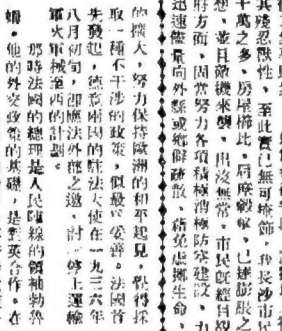 其殘忍獸性、至此實已無可掩飾、我長沙市
十萬之多、房屋櫛比、肩摩轂擊、已達膨脹之
想、並且敵機來襲、出沒無常、市民飽經目擊
府方面、固當努力各項積極消極防空建設、力
迅速儘量向外縣或鄉僻疏散、藉免虛擲生命
的擴大,努力保持歐洲的和平起見,覺得採
取一種不干涉的政策,似最妥善。法國首
先發起,德意兩國的駐法大使在一九三六年
八月初旬,即應法外部之邀,討 停止運輸
軍火軍械至西的計劃。
那時法國的總理是人民陣線的領袖勃魯
姆,他的外交政策的基礎,是對英合作。在